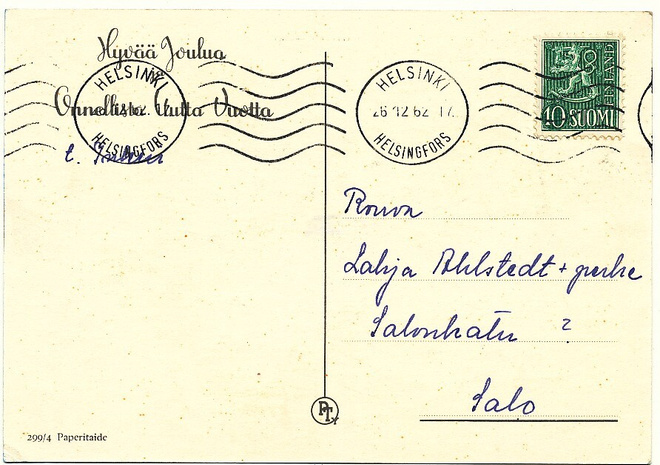 Hyvää Joulua
Onnellista Uutta Vuotta
HELSINKI
HELSINGFORS
HELSINKI
26 12 62 17.
HELSINGFORS
FINLAND
40 SUOMI
Rouva
Lahja Ahlstedt + perhe
Salonkatu 2
Salo
PT
299/4 Paperitaide